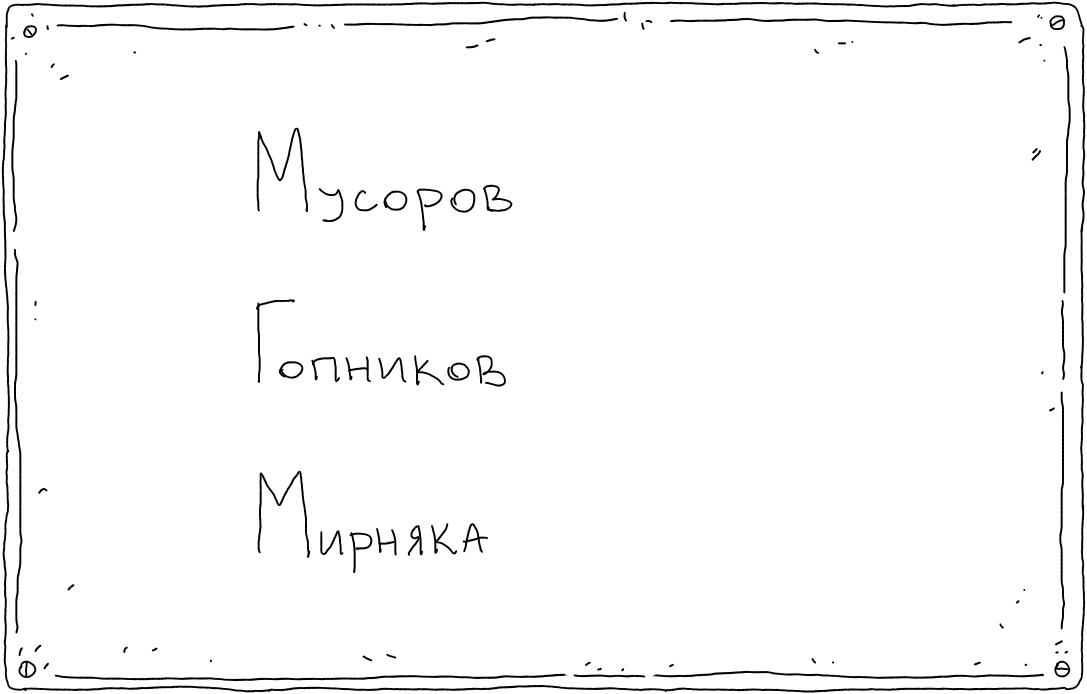 Мусоров
Гопников
Мирняка